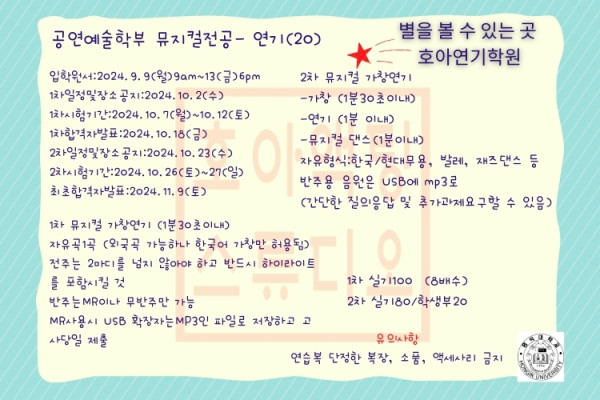 공연예술학부 뮤지컬전공- 연기(20)
별을 볼 수 있는 곳
호아연기학원
입학원서:2024. 9. 9(월)9am~13(금)6pm
1차일정및장소공지:2024. 10. 2(수)
1차시험기간:2024. 10. 7(월)~10. 12(토)
1차합격자발표:2024. 10. 18(금)
2차일정및장소공지:2024. 10. 23(수)
2차시험기간:2024. 10. 26(토)~27(일)
최초합격자발표:2024. 11. 9(토)
1차 뮤지컬 가창연기 (1분30초이내)
자유곡1곡 (외국곡 가능하나 한국어 가창만 허용됨)
전주는 2마디를 넘지 않아야 하고 반드시 하이라이트
를 포함시킬 것
반주는MR이나 무반주만 가능
MR사용시 USB 확장자는MP3인 파일로 저장하고 고
사당일 제출
2차 뮤지컬 가창연기
-가창 (1분30초이내)
-연기 (1분 이내)
-뮤지컬 댄스(1분이내)
자유형식:한국/현대무용, 발레, 재즈댄스 등
반주용 음원은 USB에 mp3로
(간단한 질의응답 및 추가과제요구할 수 있음)
1차 실기100 (8배수)
2차 실기80/학생부20
유의사항
연습복 단정한 복장, 소품, 액세사리 금지
호아액팅
스튜디오